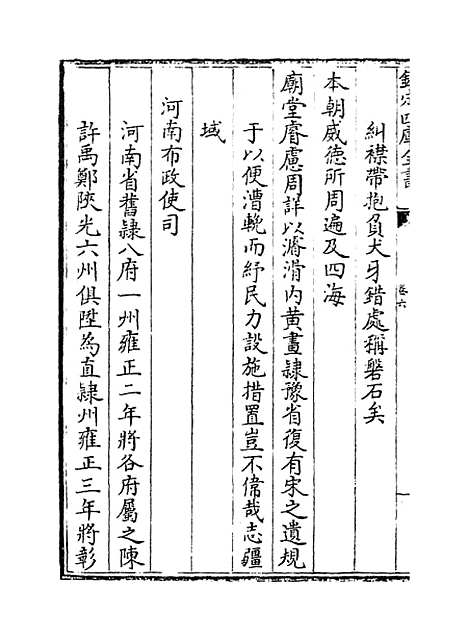 欽定四庫全書
卷六
糾襟帶抱負犬牙錯處稱磐石矣
本朝威德所周遍及四海
廟堂睿慮周詳以濬滑内黄畫隸豫省復有宋之遺規
于以便漕輓而紓民力設施措置豈不偉哉志疆
域
河南布政使司
河南省舊隸八府一州雍正二年將各府屬之陳
許禹鄭陜光六州俱陞為直隸州雍正三年將彰